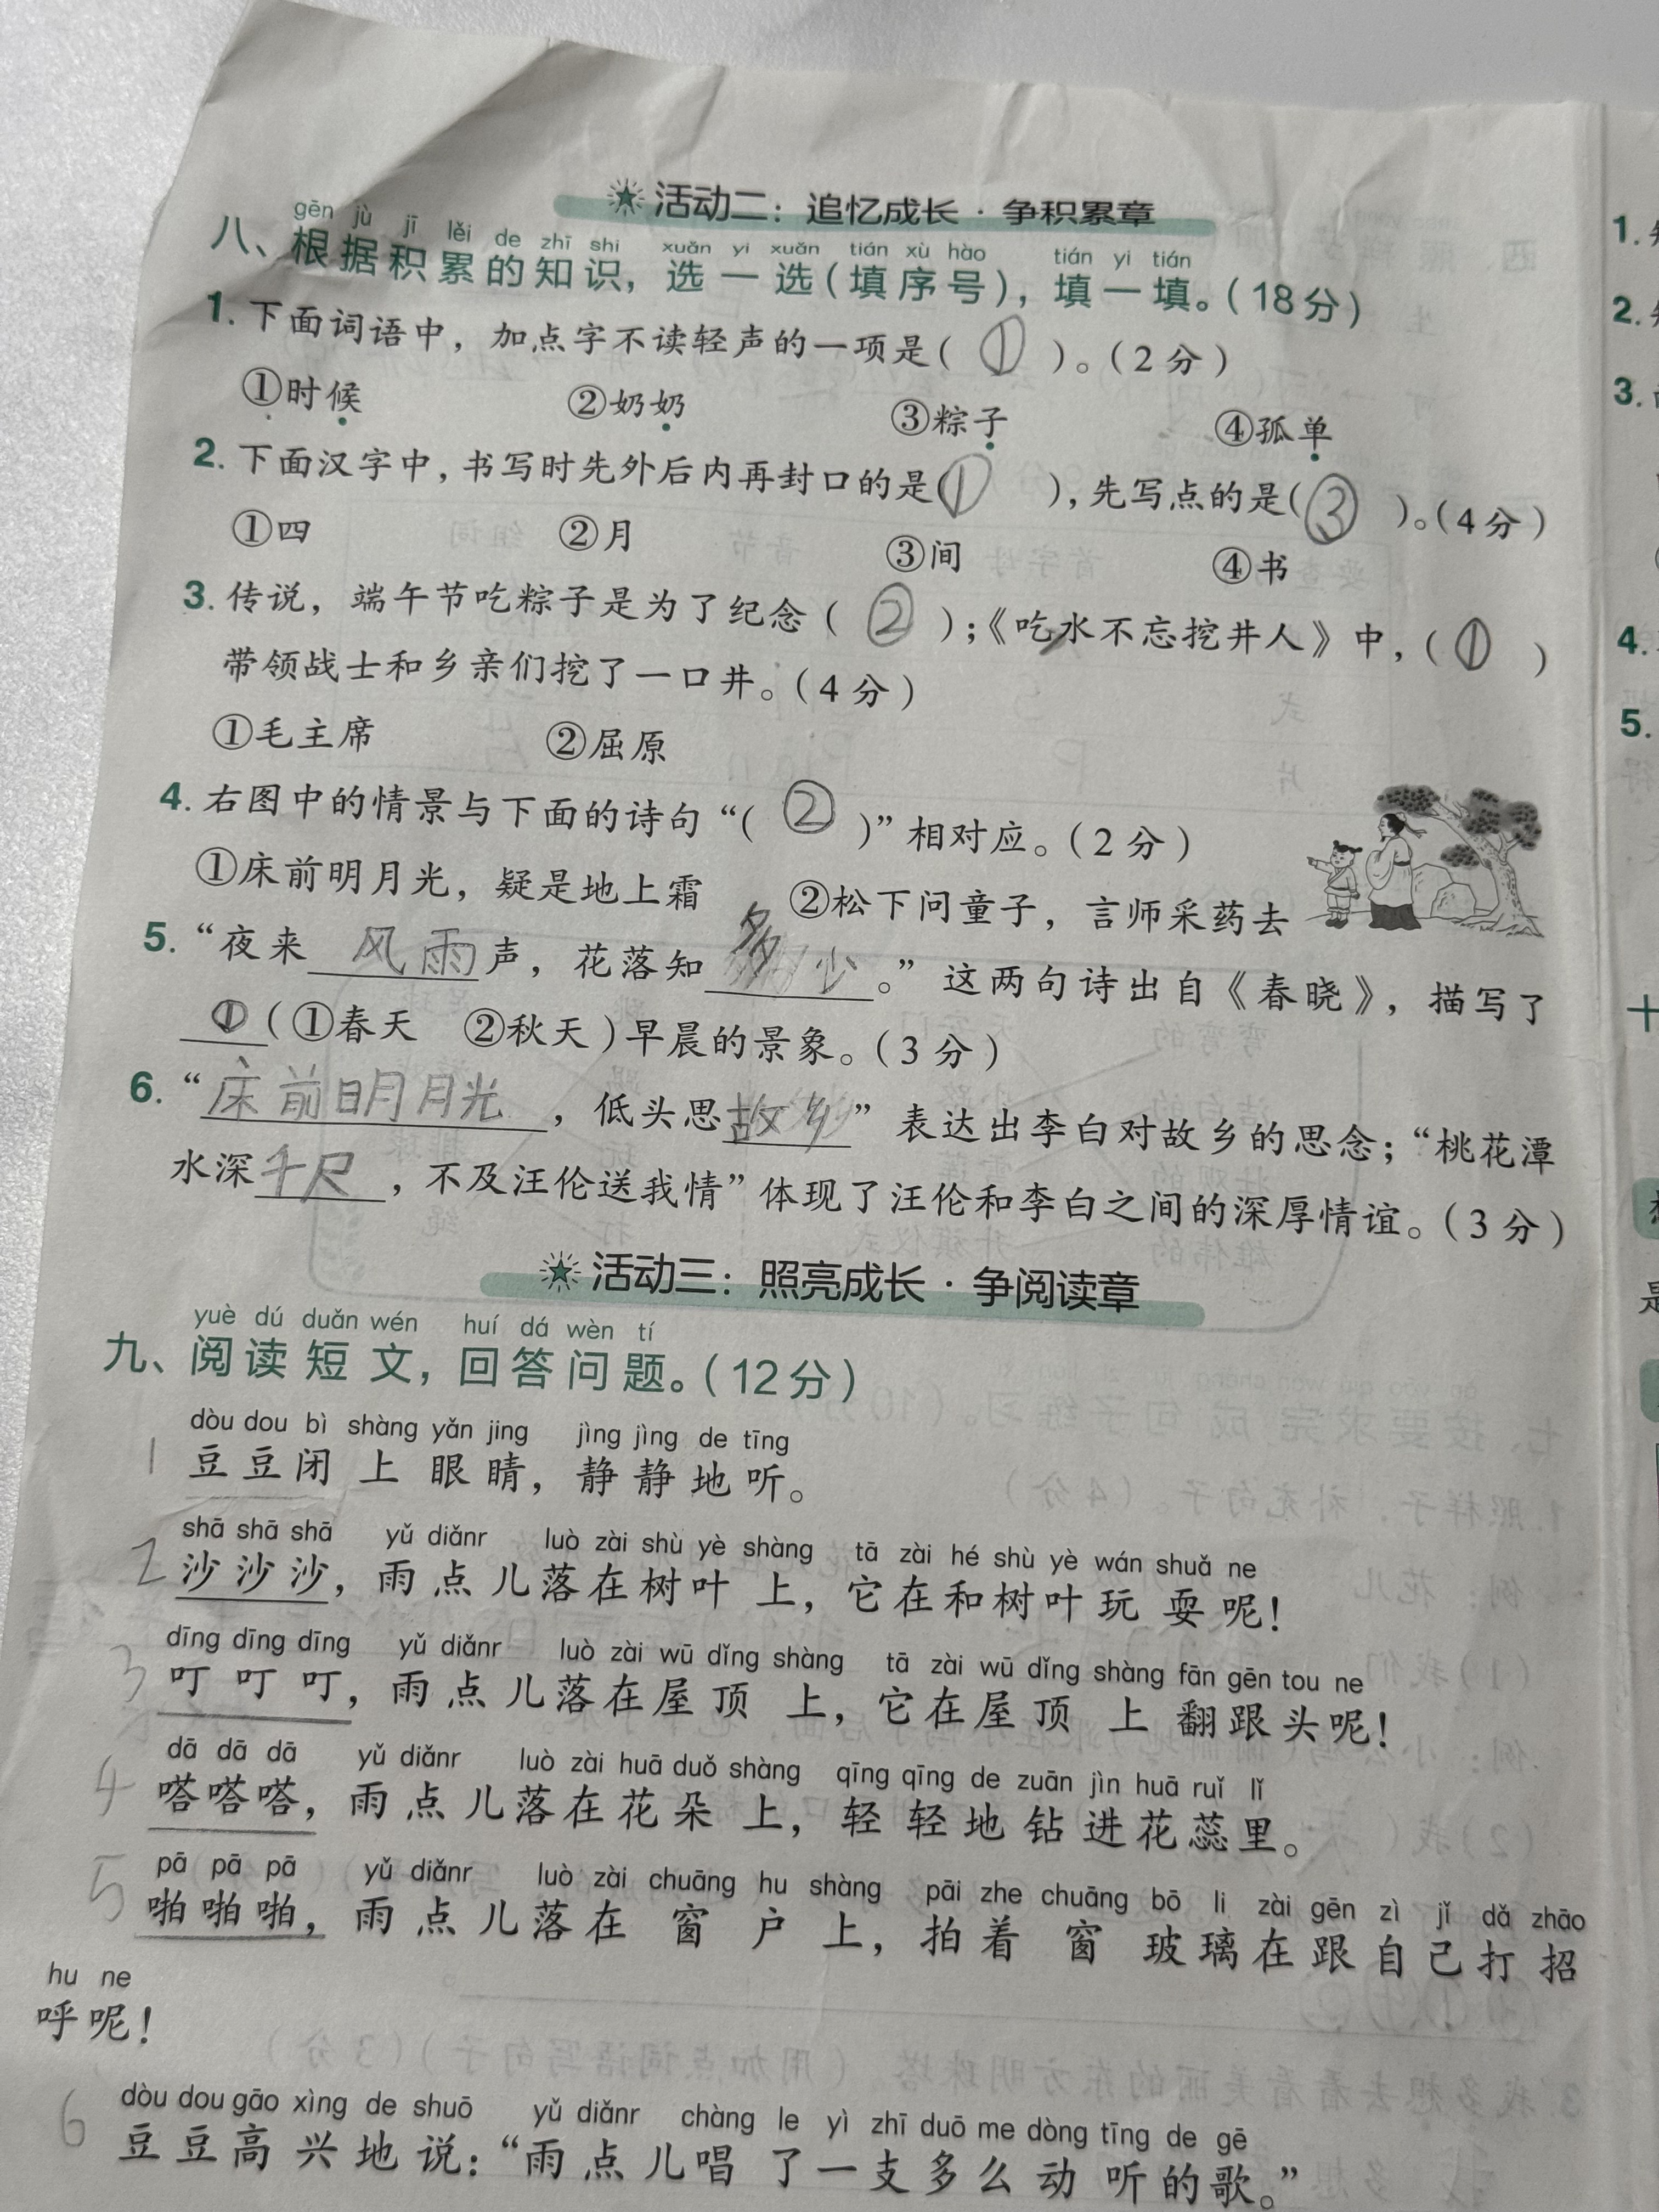 活动二：追忆成长·争积累章
gēn jù jī lěi de zhī shi xuǎn yi xuǎn tián xù hào tián yi tián
八、根据积累的知识，选一选（填序号），填一填。（18分）
1. 下面词语中，加点字不读轻声的一项是（ ① ）。（2分）
①时候 ②奶奶 ③粽子 ④孤单
2. 下面汉字中，书写时先外后内再封口的是（① ），先写点的是（③ ）。（4分）
①四 ②月 ③间 ④书
3. 传说，端午节吃粽子是为了纪念（ ② ）；《吃水不忘挖井人》中，（ ① ）
带领战士和乡亲们挖了一口井。（4分）
①毛主席 ②屈原
4. 右图中的情景与下面的诗句“（ ② ）”相对应。（2分）
①床前明月光，疑是地上霜 ②松下问童子，言师采药去
5. “夜来风雨声，花落知多少。”这两句诗出自《春晓》，描写了
①（①春天 ②秋天）早晨的景象。（3分）
6. “床前明月光，低头思故乡”表达出李白对故乡的思念；“桃花潭
水深千尺，不及汪伦送我情”体现了汪伦和李白之间的深厚情谊。（3分）
活动三：照亮成长·争阅读章
yuè dú duǎn wén huí dá wèn tí
九、阅读短文，回答问题。（12分）
dòu dou bì shàng yǎn jing jìng jìng de tīng
1 豆豆闭上眼睛，静静地听。
shā shā shā yǔ diǎnr luò zài shù yè shàng tā zài hé shù yè wán shuǎ ne
2 沙沙沙，雨点儿落在树叶上，它在和树叶玩耍呢！
dīng dīng dīng yǔ diǎnr luò zài wū dǐng shàng tā zài wū dǐng shàng fān gēn tou ne
3 叮叮叮，雨点儿落在屋顶上，它在屋顶上翻跟头呢！
dā dā dā yǔ diǎnr luò zài huā duǒ shàng qīng qīng de zuān jìn huā ruǐ lǐ
4 嗒嗒嗒，雨点儿落在花朵上，轻轻地钻进花蕊里。
pā pā pā yǔ diǎnr luò zài chuāng hu shàng pāi zhe chuāng bō li zài gēn zì jǐ dǎ zhāo
5 啪啪啪，雨点儿落在窗户上，拍着窗玻璃在跟自己打招
hu ne
呼呢！
dòu dou gāo xìng de shuō yǔ diǎnr chàng le yì zhī duō me dòng tīng de gē
6 豆豆高兴地说：“雨点儿唱了一支多么动听的歌。”
1.
2.
3.
4.
5.
十